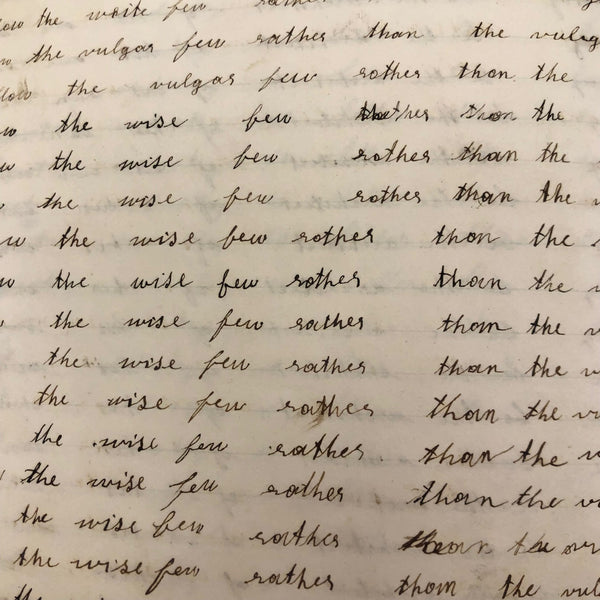 low the wise few rather
the vulgar few rather than the vulg
low the vulgar few rother than the
the wise few than the
the wise few rother than the
the wise few rother than the
the wise few rother than the
the wise few rother than the
the wise few rather than the
the wise few rather than the
the wise few rather than the vu
the wise few rather than the
the wise few rather than the v
the wise few rather the
the wise few rather than the vul